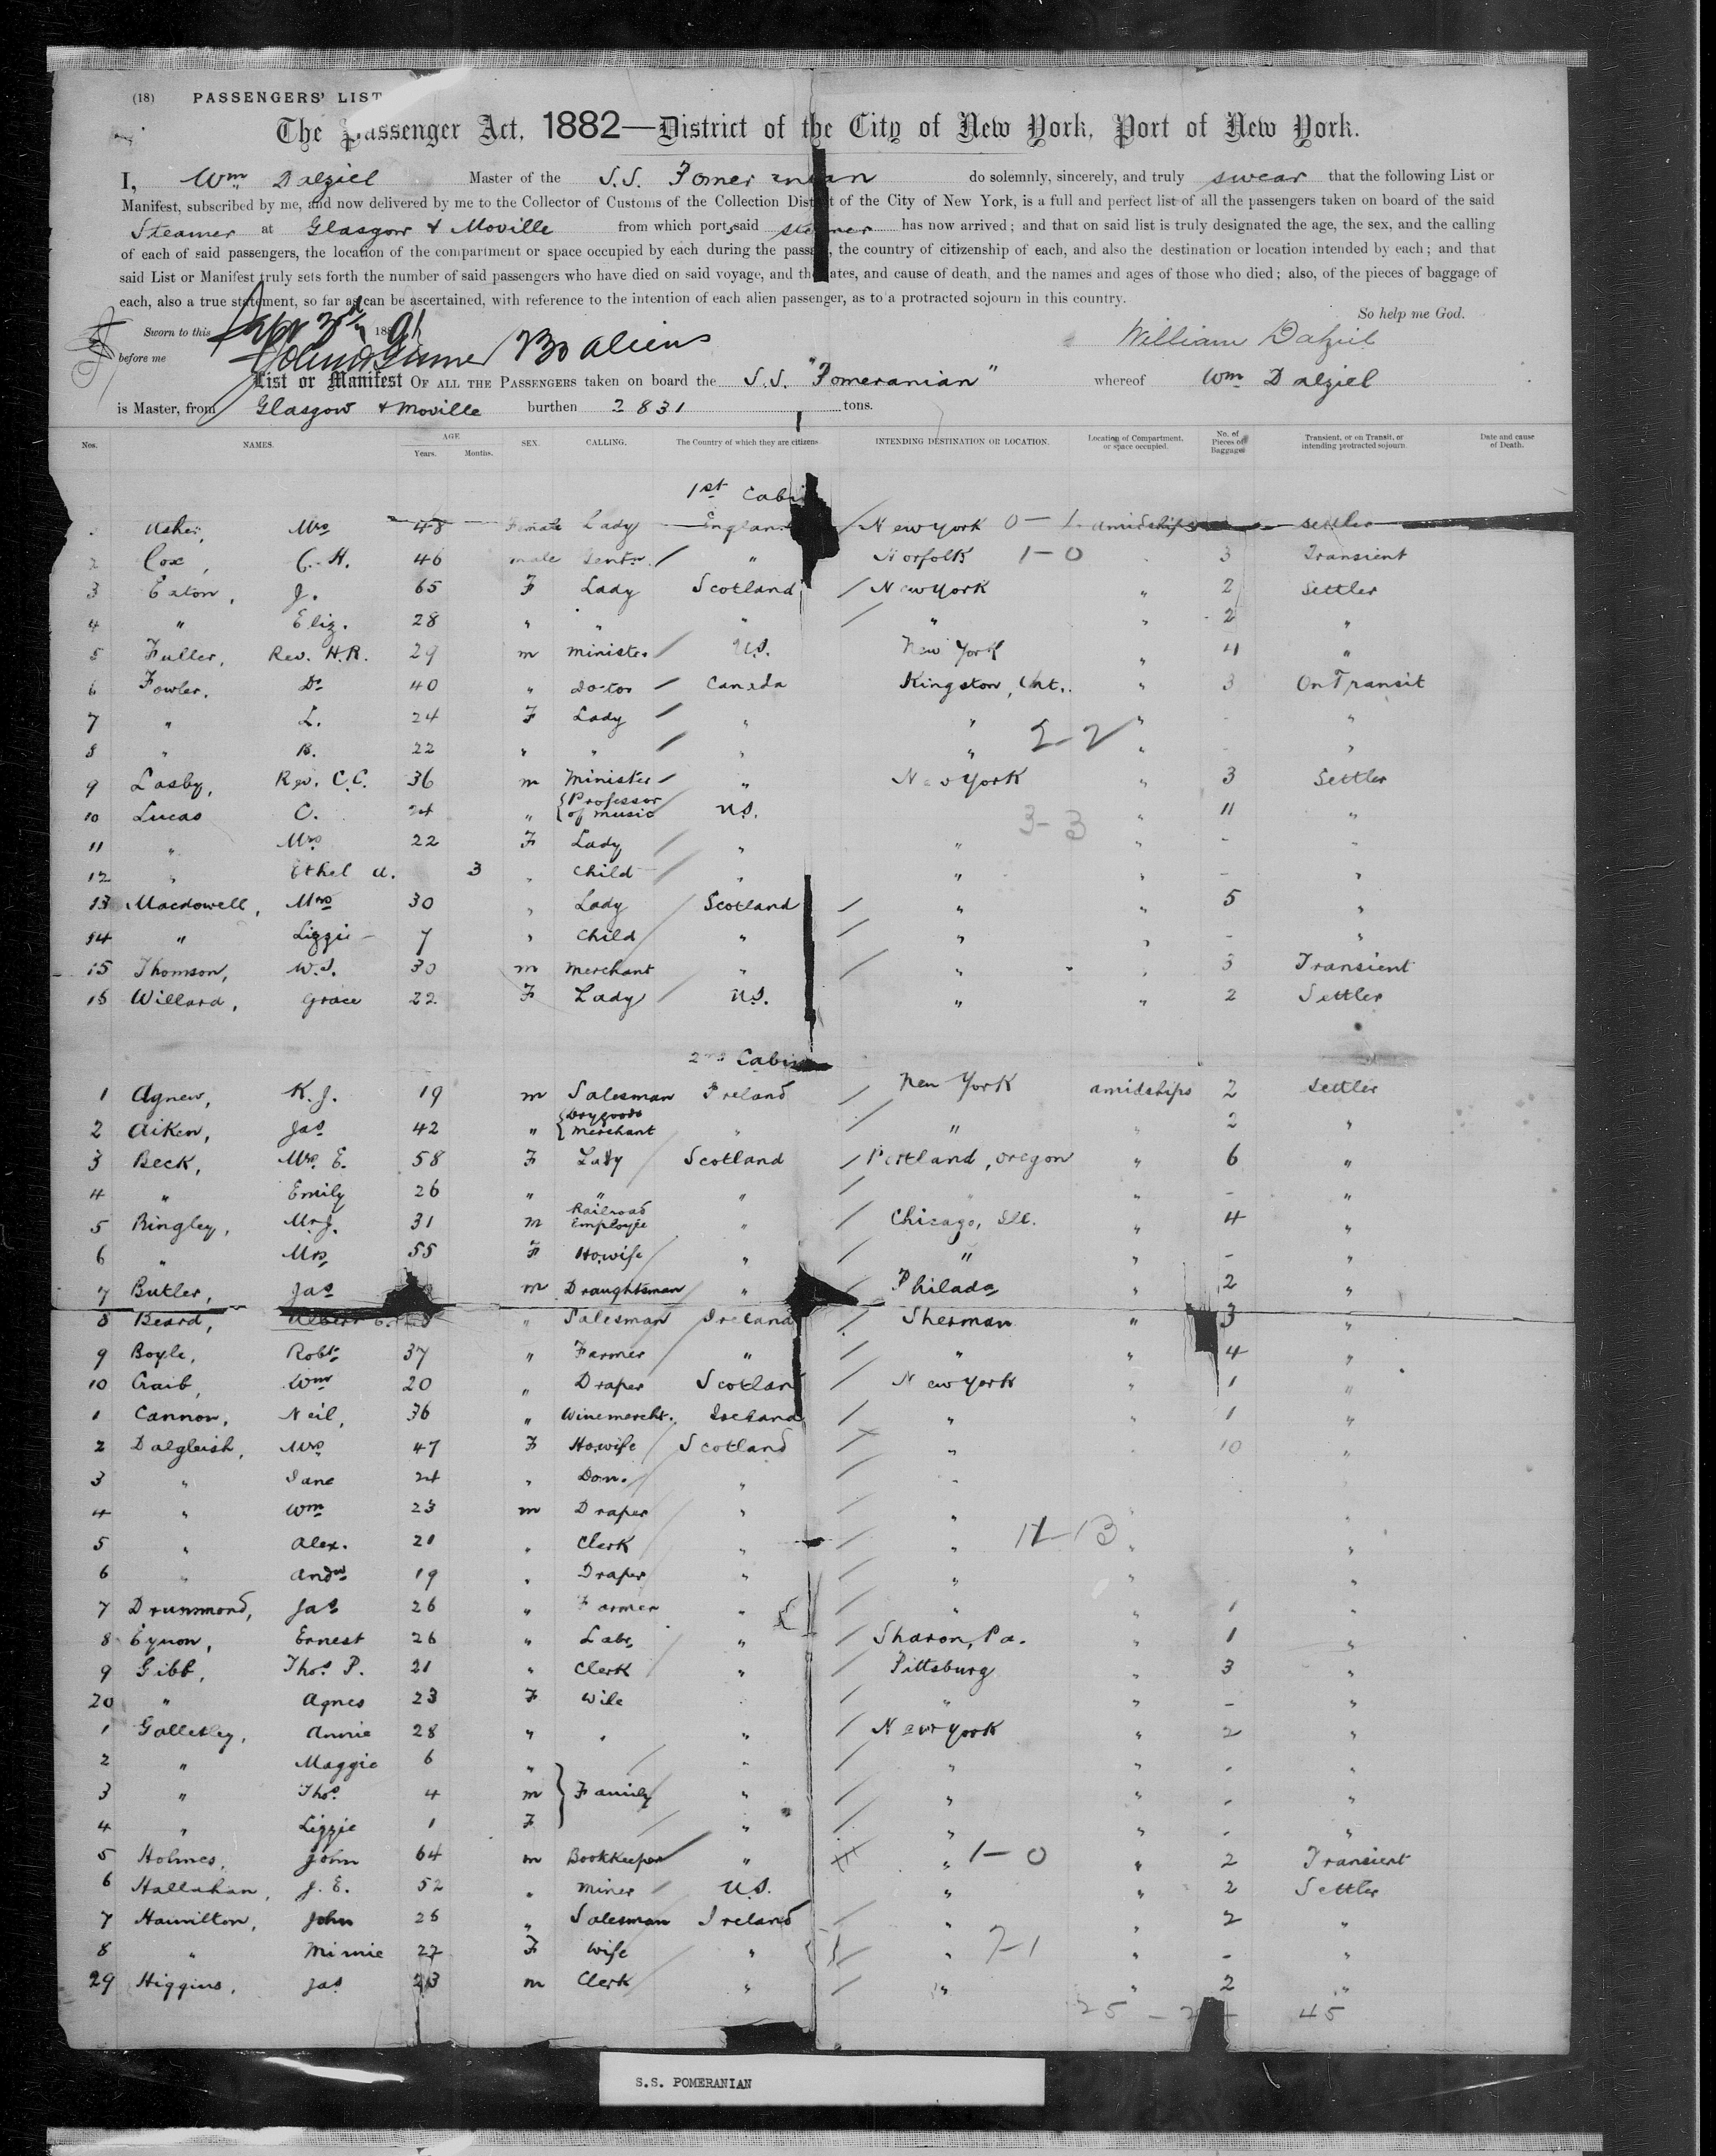 (18) PASSENGERS' LIST
The Passenger Act, 1882—District of the City of New York, Port of New York.
I, Wm Dalziel Master of the S.S. Pomeranian do solemnly, sincerely, and truly swear that the following List or
Manifest, subscribed by me, and now delivered by me to the Collector of Customs of the Collection District of the City of New York, is a full and perfect list of all the passengers taken on board of the said
Steamer at Glasgow & Moville from which port, said steamer has now arrived; and that on said list is truly designated the age, the sex, and the calling
of each of said passengers, the location of the compartment or space occupied by each during the passage, the country of citizenship of each, and also the destination or location intended by each; and that
said List or Manifest truly sets forth the number of said passengers who have died on said voyage, and the dates, and cause of death, and the names and ages of those who died; also, of the pieces of baggage of
each, also a true statement, so far as can be ascertained, with reference to the intention of each alien passenger, as to a protracted sojourn in this country.
So help me God.
Sworn to this 3rd 1891
before me aliens William Dalziel
List or Manifest OF ALL THE PASSENGERS taken on board the S.S. "Pomeranian" whereof Wm Dalziel
is Master, from Glasgow & Moville burthen 2831 tons.
Nos. NAMES. AGE Years. Months. SEX. CALLING. The Country of which they are citizens. INTENDING DESTINATION OR LOCATION. Location of Compartment, or space occupied. No. of Pieces of Baggage Transient, or on Transit, or intending protracted sojourn. Date and cause of Death.
1st Cabin
Usher, Mrs 48 Female Lady England / New York 0-1 amidships Settler
2 Cox, C. H. 46 male Gentn / " Norfolk 1-0 3 Transient
3 Eaton, J. 65 F Lady Scotland / New York " 2 Settler
4 " Eliz. 28 " " " / " " 2 "
5 Fuller, Rev. H.R. 29 m minister / U.S. New York " 4 "
6 Fowler, Dr 40 " doctor / Canada Kingston, Ont. " 3 On Transit
7 " L. 24 F Lady / " " " - "
8 " B. 22 " " / " " 2-2 " - "
9 Lasby, Rev. C.C. 36 m Minister / " New York " 3 Settler
10 Lucas C. 24 " {Professor of music U.S. 3-3 " 11 "
11 " Mrs 22 F Lady / " " " - "
12 " Ethel A. 3 " Child " " " - "
13 Macdowell, Mrs 30 " Lady / Scotland / " " 5 "
14 " Lizzie 7 " Child / " / " " - "
15 Thomson, W.S. 30 m merchant " / " " 3 Transient
16 Willard, Grace 22 F Lady / U.S. " " 2 Settler
2nd Cabin
1 Agnew, K. J. 19 m Salesman Ireland / New York amidships 2 Settler
2 Aiken, Jas 42 " {Drygoods merchant " / " " 2 "
3 Beck, Mrs E. 58 F Lady / Scotland / Portland, Oregon " 6 "
4 " Emily 26 " " " / " " - "
5 Bingley, Mr J. 31 m Railroad Employee " / Chicago, Ill. " 4 "
6 " Mrs 55 F Howife / " / " " - "
7 Butler, Jas m Draughtsman / " / Philada " 2 "
8 Beard, Albert E. " Salesman / Ireland / Sherman " 3 "
9 Boyle, Robt 37 " Farmer / " / " " 4 "
10 Craib, Wm 20 " Draper Scotland / New York " 1 "
1 Cannon, Neil, 36 " Winemercht. Ireland / " " 1 "
2 Dalgleish, Mrs 47 F Howife / Scotland / " 10 "
3 " Jane 24 " Dom. / " / "
4 " Wm 23 m Draper " / " "
5 " Alex. 21 " Clerk " / " 11-13 " "
6 " Andw 19 " Draper " / " " "
7 Drummond, Jas 26 " Farmer " / " " 1 "
8 Eynon, Ernest 26 " Labr / " / Sharon, Pa. " 1 "
9 Gibb, Thos P. 21 " Clerk / " / Pittsburg " 3 "
20 " Agnes 23 F Wife " / " " - "
1 Galletley, Annie 28 " " " / New York " 2 "
2 " Maggie 6 " / " / " " - "
3 " Thos 4 m } Family " / " " - "
4 " Lizzie 1 F / " / " " - "
5 Holmes, John 64 m Bookkeeper " " 1-0 " 2 Transient
6 Hallahan, J. E. 52 " miner / U.S. " " 2 Settler
7 Hamilton, John 26 " Salesman Ireland / " " 2 "
8 " Minnie 27 F Wife " / " 7-1 " - "
29 Higgins, Jas 23 m Clerk " / " " 2 "
25 - 45
S.S. POMERANIAN